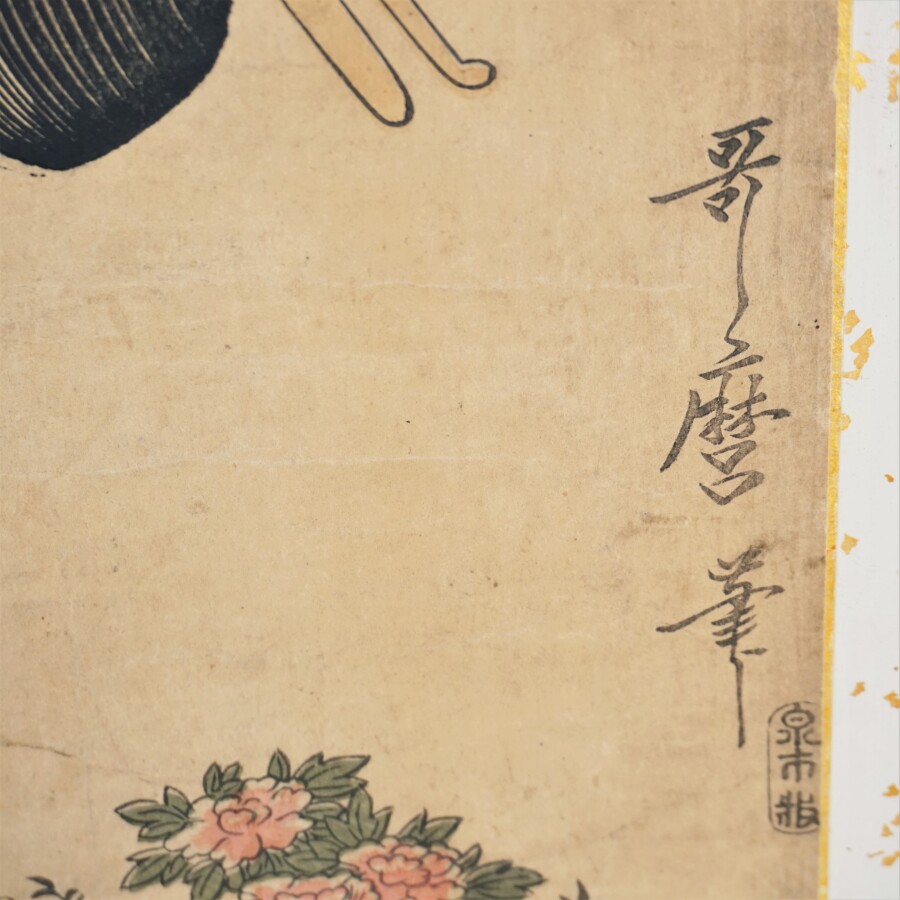 哥麿筆
泉市版